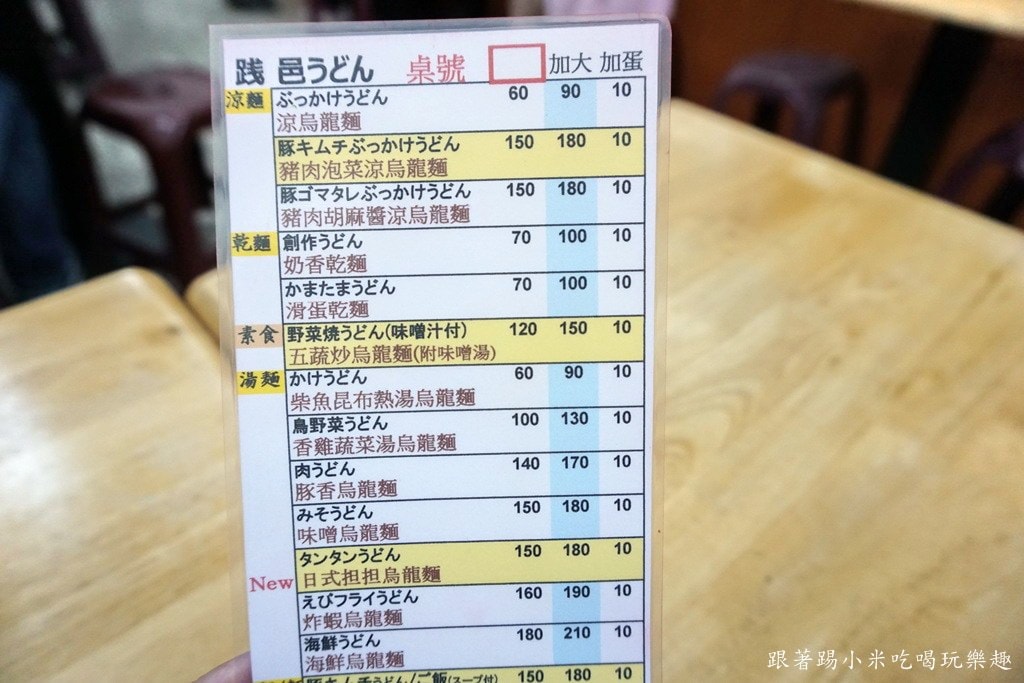 践邑うどん 桌號 加大 加蛋
涼麵 ぶっかけうどん 60 90 10
涼烏龍麵
豚キムチぶっかけうどん 150 180 10
豬肉泡菜涼烏龍麵
豚ゴマタレぶっかけうどん 150 180 10
豬肉胡麻醬涼烏龍麵
乾麵 創作うどん 70 100 10
奶香乾麵
かまたまうどん 70 100 10
滑蛋乾麵
素食 野菜焼うどん(味噌汁付) 120 150 10
五蔬炒烏龍麵(附味噌湯)
湯麵 かけうどん 60 90 10
柴魚昆布熱湯烏龍麵
鳥野菜うどん 100 130 10
香雞蔬菜湯烏龍麵
肉うどん 140 170 10
豚香烏龍麵
みそうどん 150 180 10
味噌烏龍麵
タンタンうどん 150 180 10
New 日式担担烏龍麵
えびフライうどん 160 190 10
炸蝦烏龍麵
海鮮うどん 180 210 10
海鮮烏龍麵
豚キムチうどん/ご飯(スープ付) 150 180 10
跟著踢小米吃喝玩樂趣